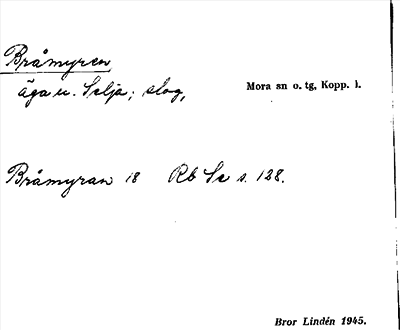 Bråmyren
äga u. Selja; slog,
Mora sn o. tg, Kopp. l.
Bråmyran 18 Rb Se s. 128.
Bror Lindén 1945.